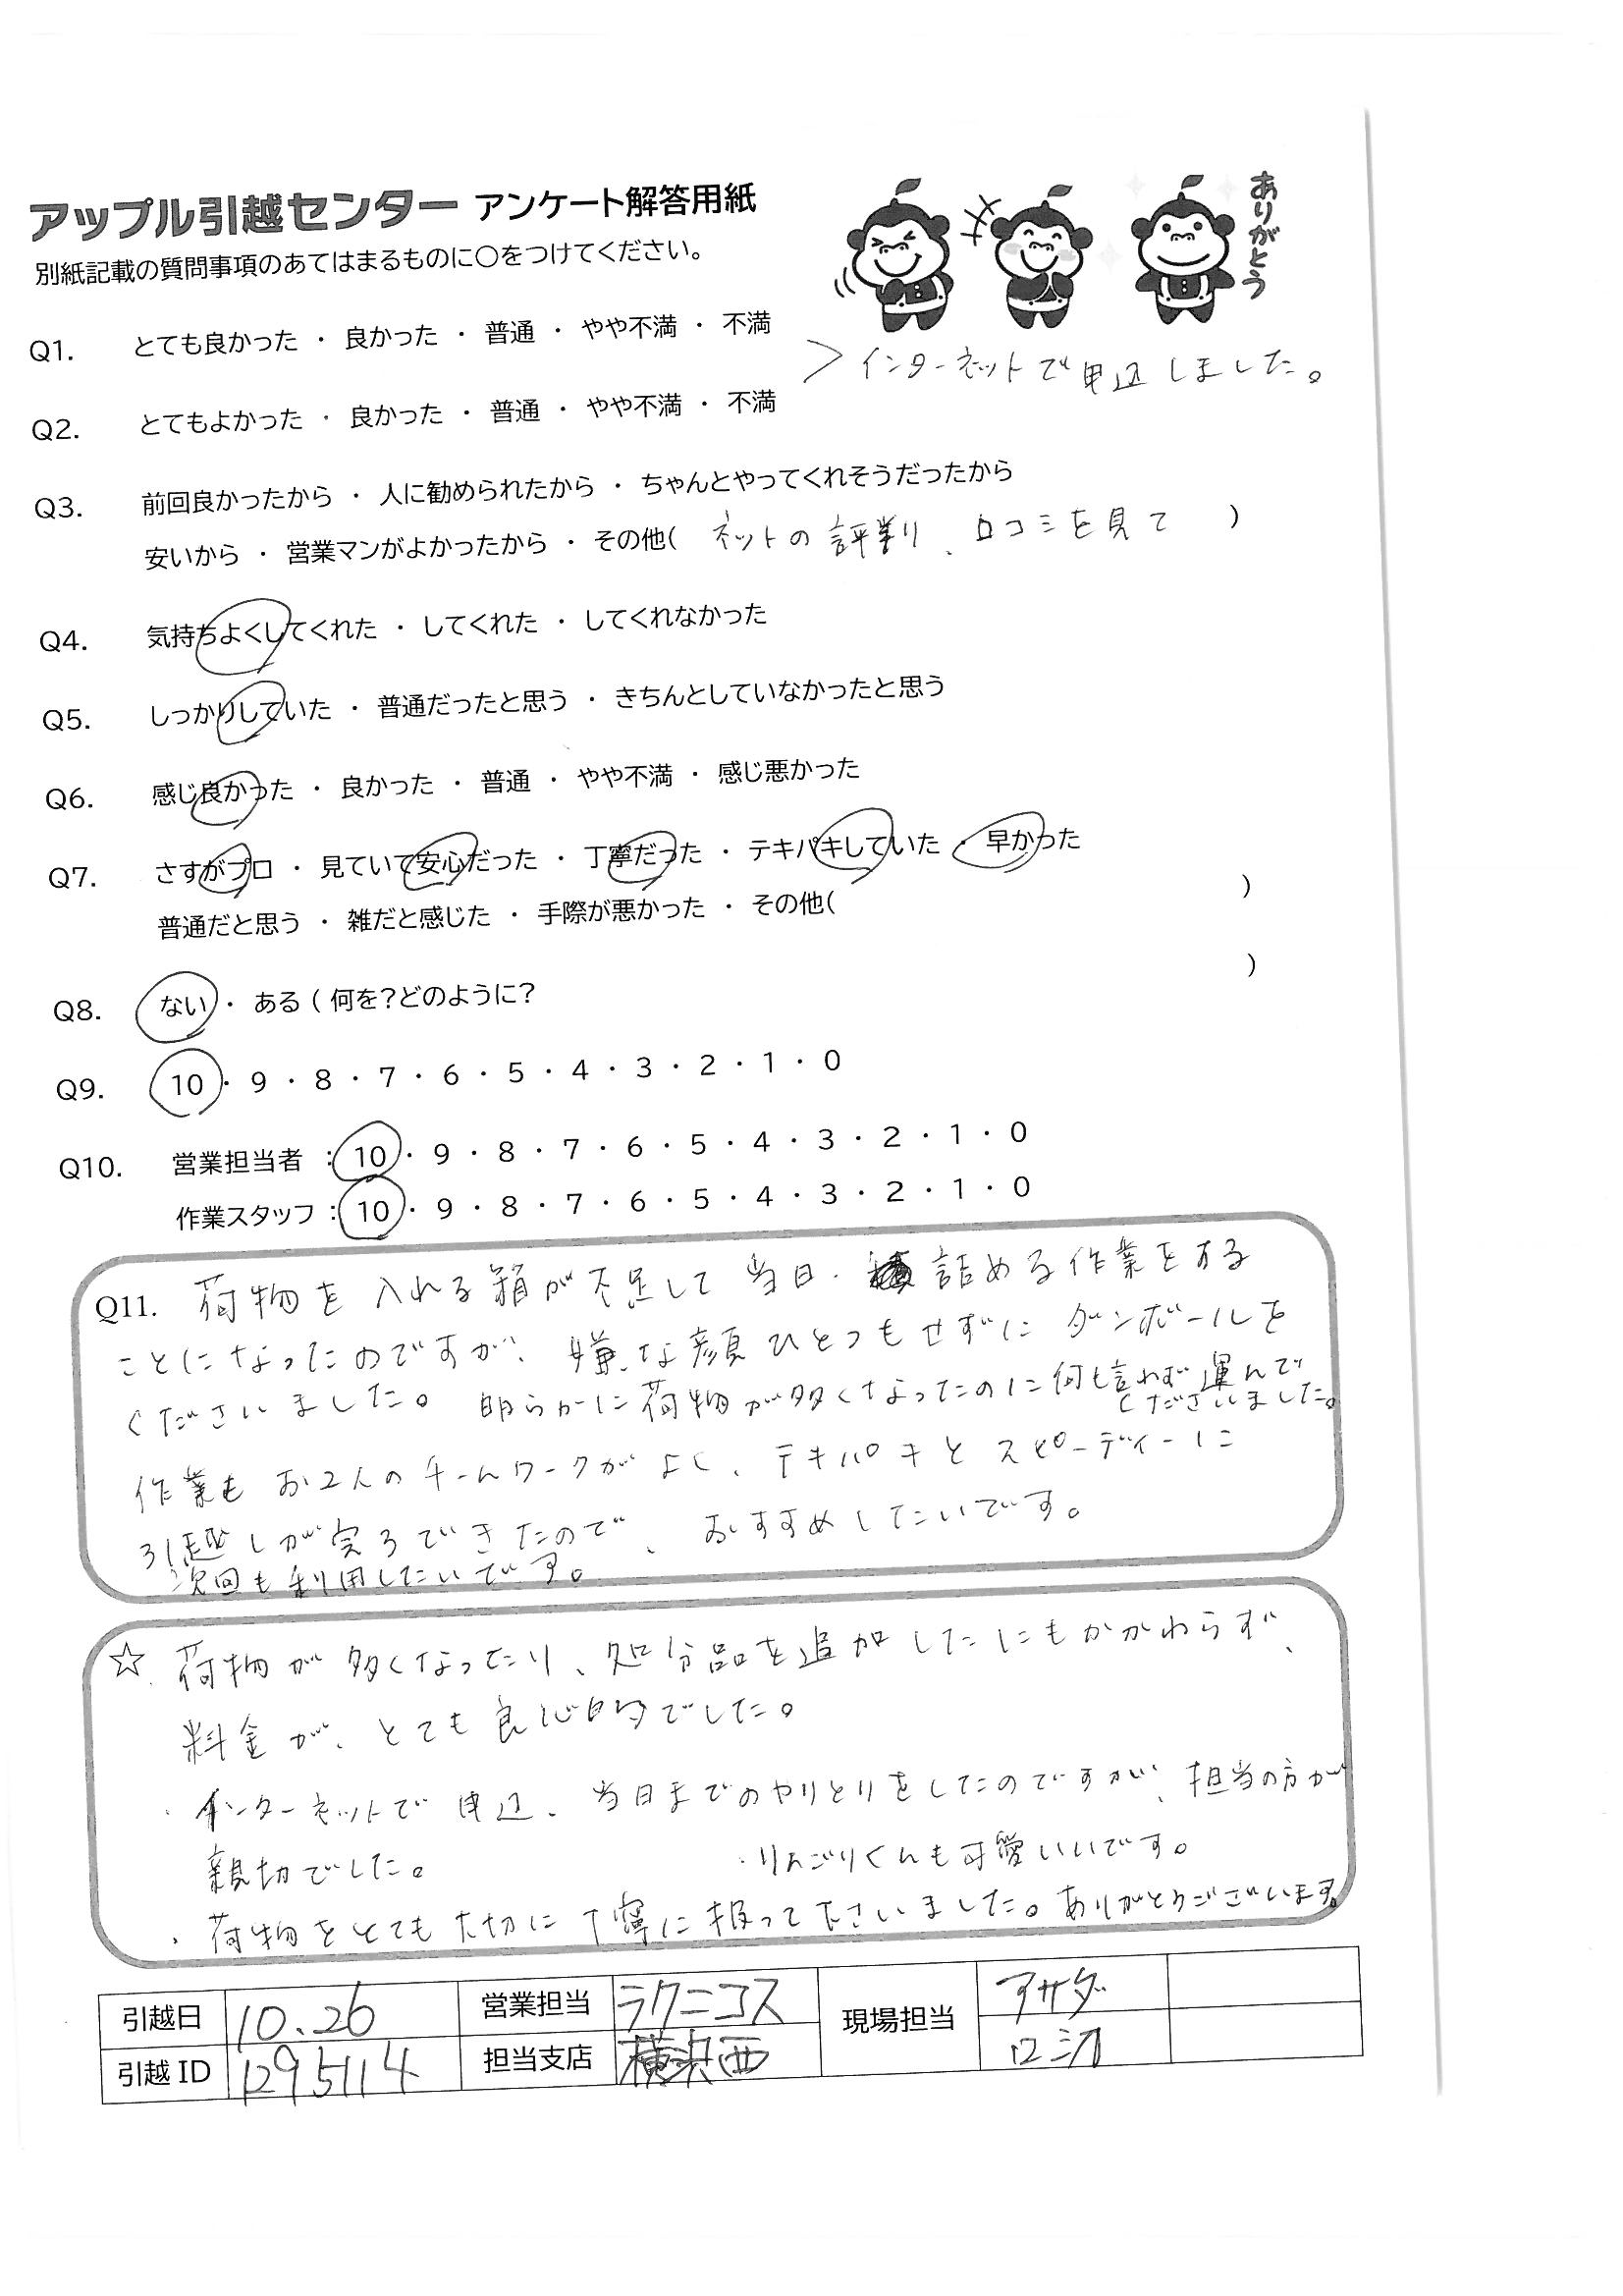 アップル引越センター アンケート解答用紙
別紙記載の質問事項のあてはまるものに〇をつけてください。
ありがとう
Q1. とても良かった ・ 良かった ・ 普通 ・ やや不満 ・ 不満
＞インターネットで申込しました。
Q2. とてもよかった ・ 良かった ・ 普通 ・ やや不満 ・ 不満
Q3. 前回良かったから ・ 人に勧められたから ・ ちゃんとやってくれそうだったから
安いから ・ 営業マンがよかったから ・ その他( ネットの評判、口コミを見て )
Q4. 気持ちよくしてくれた ・ してくれた ・ してくれなかった
Q5. しっかりしていた ・ 普通だったと思う ・ きちんとしていなかったと思う
Q6. 感じ良かった ・ 良かった ・ 普通 ・ やや不満 ・ 感じ悪かった
Q7. さすがプロ ・ 見ていて安心だった ・ 丁寧だった ・ テキパキしていた ・ 早かった
普通だと思う ・ 雑だと感じた ・ 手際が悪かった ・ その他( )
Q8. ない ・ ある ( 何を?どのように? )
Q9. 10 ・ 9 ・ 8 ・ 7 ・ 6 ・ 5 ・ 4 ・ 3 ・ 2 ・ 1 ・ 0
Q10. 営業担当者 : 10 ・ 9 ・ 8 ・ 7 ・ 6 ・ 5 ・ 4 ・ 3 ・ 2 ・ 1 ・ 0
作業スタッフ : 10 ・ 9 ・ 8 ・ 7 ・ 6 ・ 5 ・ 4 ・ 3 ・ 2 ・ 1 ・ 0
Q11. 荷物を入れる箱が不足して当日、詰める作業をする
ことになったのですが、嫌な顔ひとつもせずにダンボールを
くださいました。明らかに荷物が多くなったのに何も言わず運んで
くださいました。
作業もお2人のチームワークがよく、テキパキとスピーディーに
引越しが完了できたので、おすすめしたいです。
次回も利用したいです。
☆ 荷物が多くなったり、処分品を追加したにもかかわらず、
料金が、とても良心的でした。
・インターネットで申込、当日までのやりとりをしたのですが、担当の方が
親切でした。 ・りんごりくんも可愛いいです。
・荷物をとても大切に丁寧に扱って下さいました。ありがとうございます。
引越日 10.26 営業担当 ラクニコス 現場担当 アサダ
引越ID 1295114 担当支店 横浜西